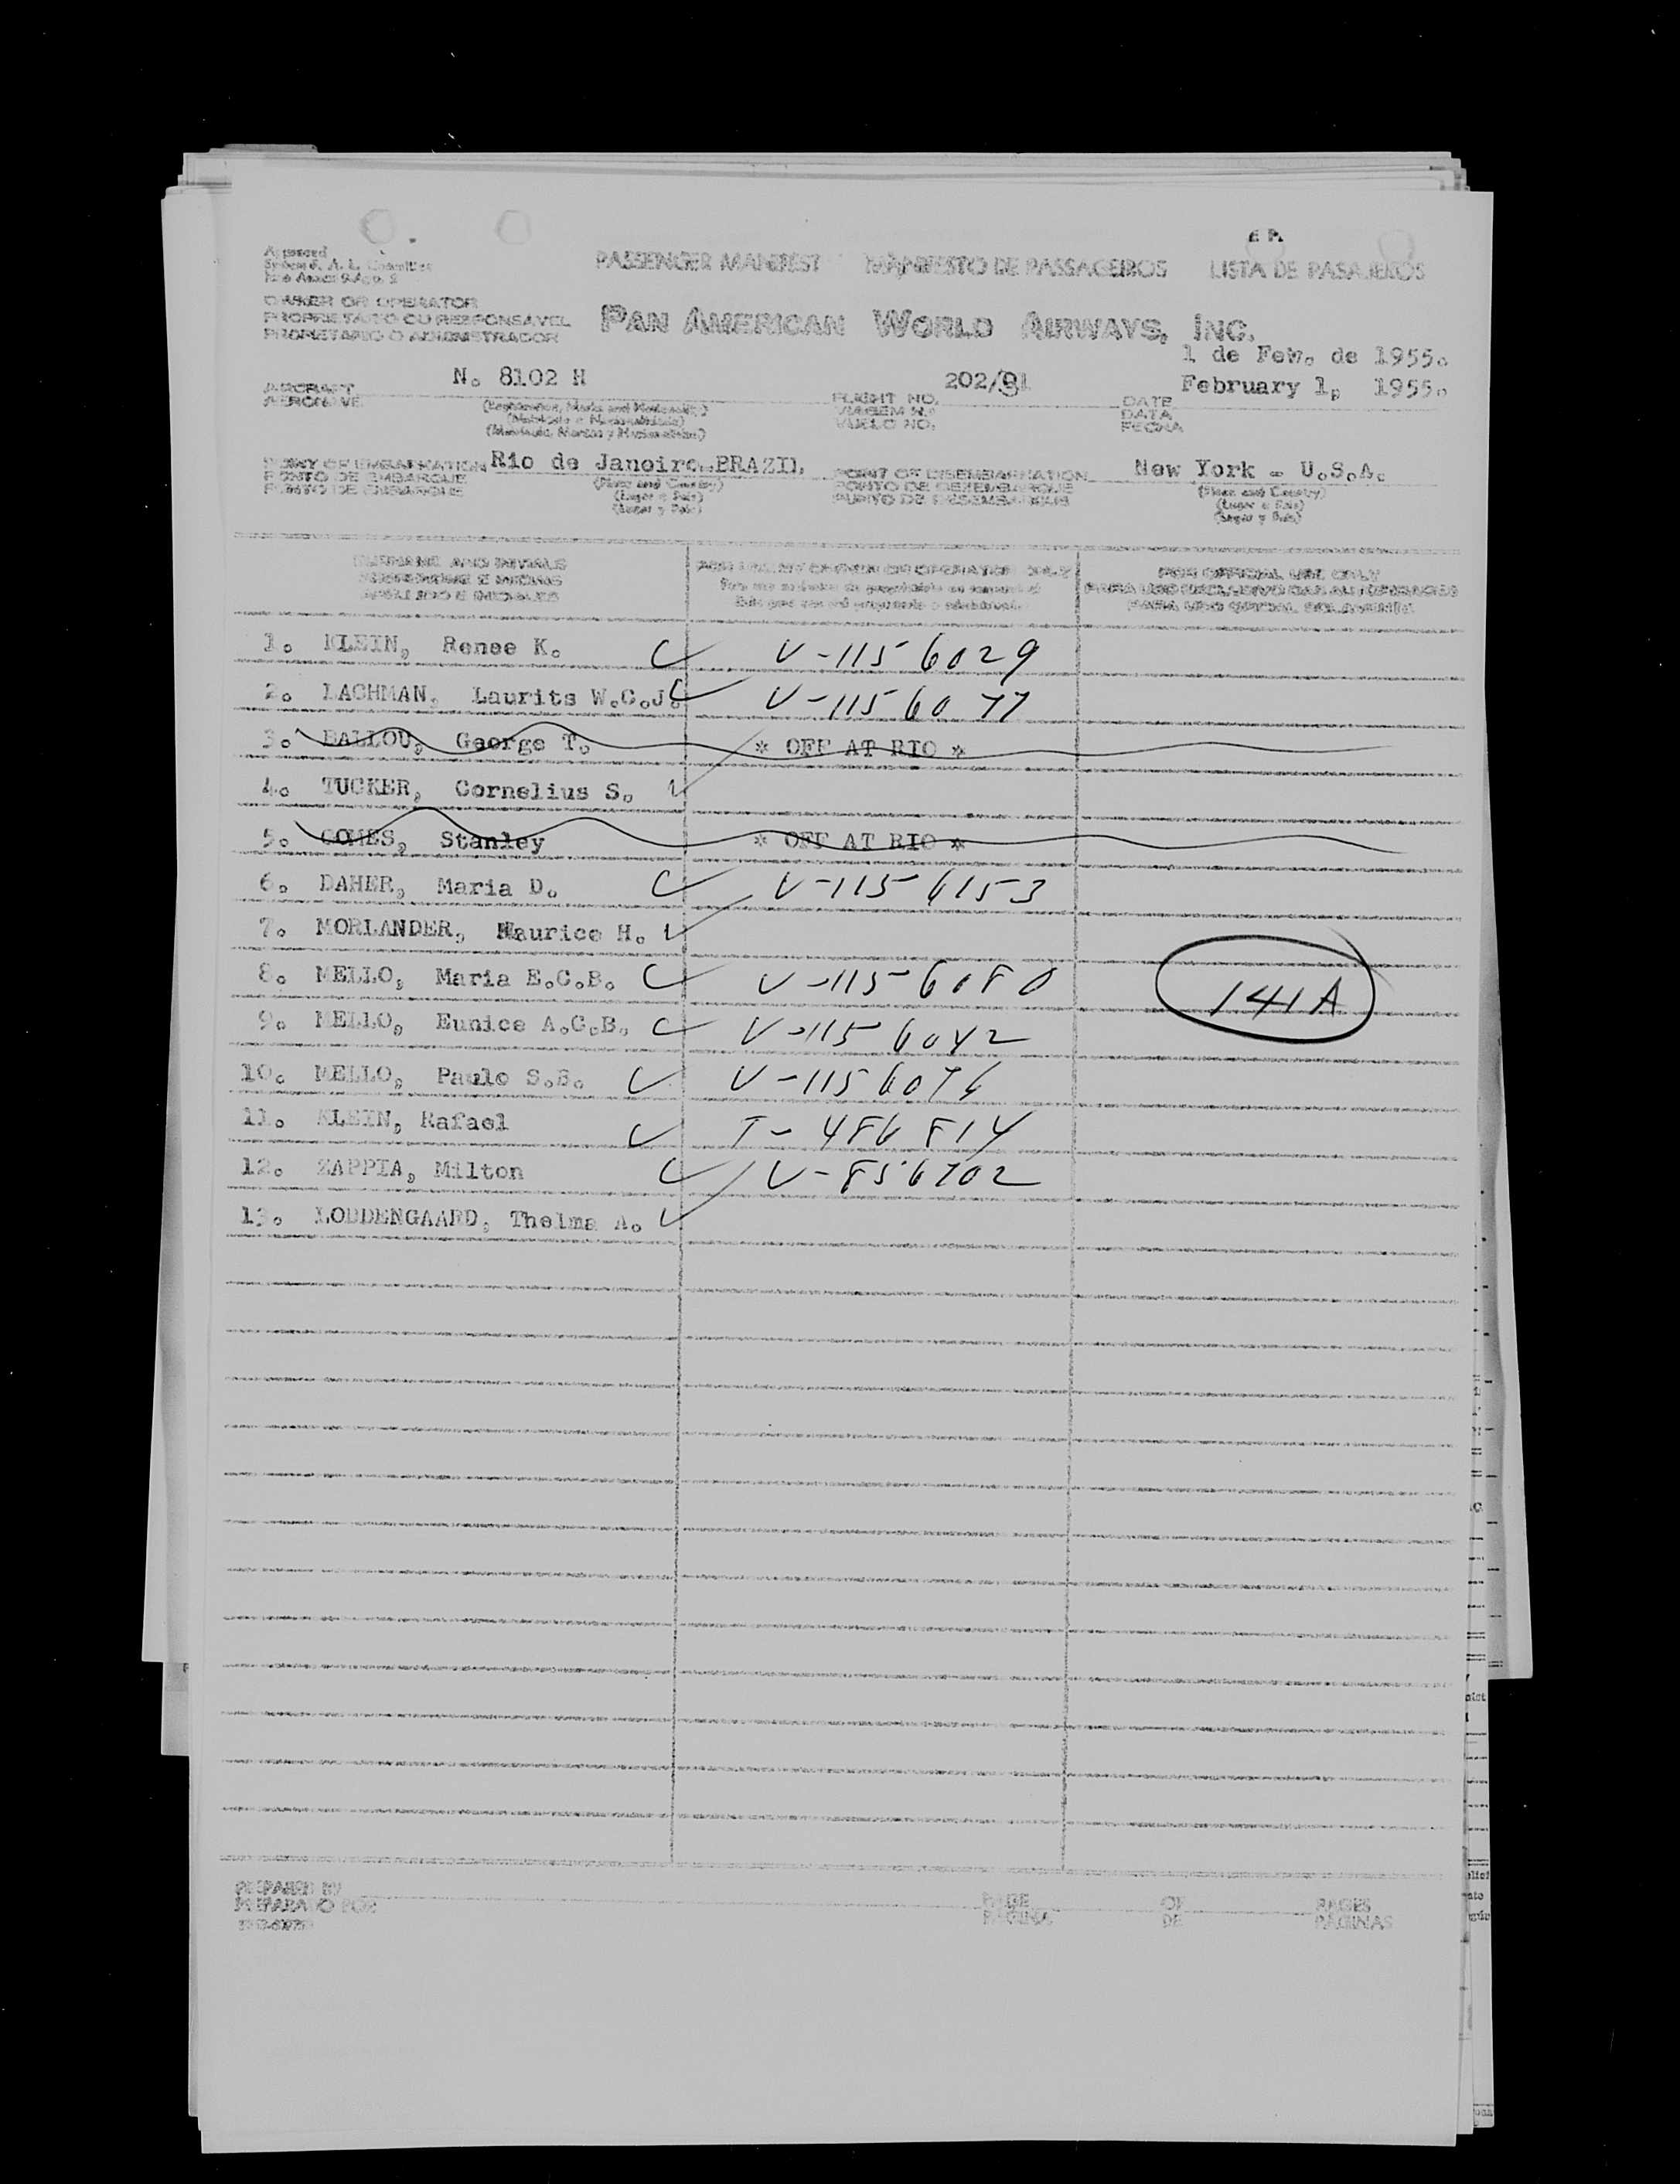 E P.
Approved
PASSENGER MANIFEST MANIFESTO DE PASSAGEIROS LISTA DE PASAJEROS
OWNER OR OPERATOR
PROPRIETARIO OU RESPONSAVEL
PROPIETARIO O ADMINISTRADOR
PAN AMERICAN WORLD AIRWAYS, INC.
1 de Feb. de 1955.
February 1, 1955.
AIRCRAFT
AERONAVE
N. 8102 H
FLIGHT NO.
VIAGEM N.º
VUELO NO.
202/
DATE
DATA
FECHA
POINT OF EMBARKATION
PONTO DE EMBARQUE
PUNTO DE EMBARQUE
Rio de Janeiro. BRAZIL
(Place and Country)
(Lugar e País)
(Lugar y País)
POINT OF DISEMBARKATION
PONTO DE DESEMBARQUE
PUNTO DE DESEMBARQUE
New York - U.S.A.
(Place and Country)
(Lugar e País)
(Lugar y País)
SURNAME AND INITIALS
SOBRENOME E INICIAIS
APELLIDO E INICIALES
FOR USE BY OWNER OR OPERATOR ONLY
FOR OFFICIAL USE ONLY
PARA USO EXCLUSIVO DAS AUTORIDADES
PARA USO OFICIAL SOLAMENTE
1. KLEIN, Renee K. V-1156029
2. LACHMAN, Laurits W.C.J. V-1156077
3. BALLOU, George T. * OFF AT RIO *
4. TUCKER, Cornelius S.
5. GOMES, Stanley * OFF AT RIO *
6. DAHER, Maria D. V-1156153
7. MORLANDER, Maurice H.
8. MELLO, Maria E.C.B. V-1156080
141A
9. MELLO, Eunice A.C.B. V-1156042
10. MELLO, Paulo S.B. V-1156076
11. KLEIN, Rafael T-486814
12. ZAPPIA, Milton V-856702
13. LODDENGAARD, Thelma A.
PREPARED BY
PREPARADO POR
PAGE OF PAGES
PAGINA DE PAGINAS